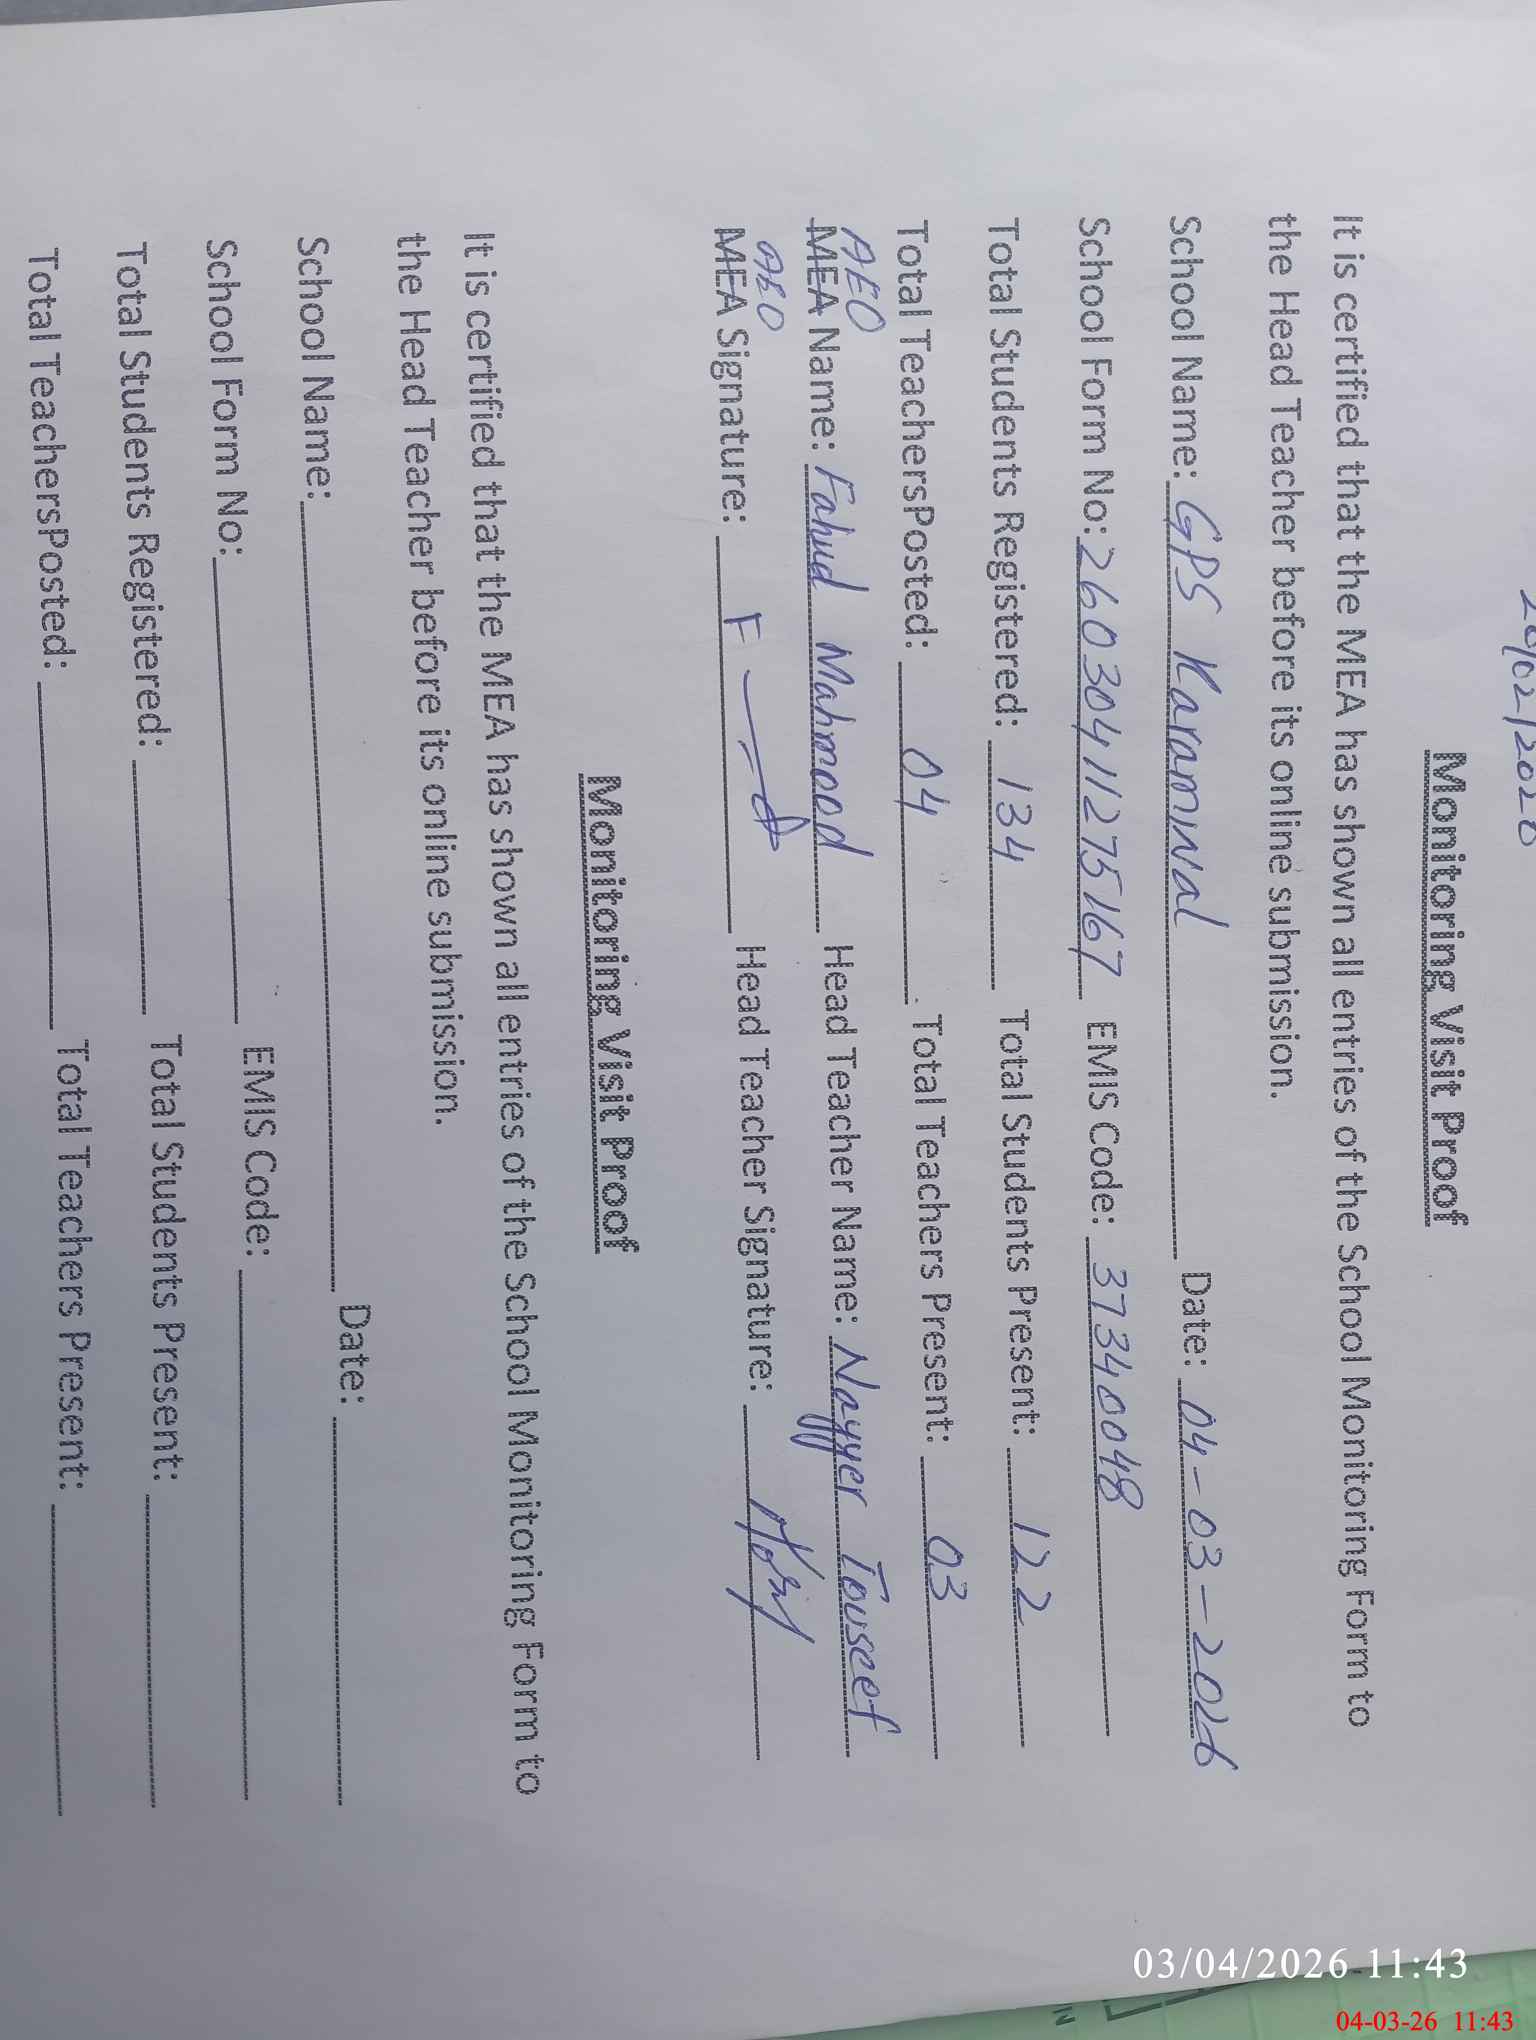 Monitoring Visit Proof
It is certified that the MEA has shown all entries of the School Monitoring Form to
the Head Teacher before its online submission.
School Name: GPS Karamwal Date: 04-03-2026
School Form No: 26030411275167 EMIS Code: 37340048
Total Students Registered: 134 Total Students Present: 122
Total TeachersPosted: 04 Total Teachers Present: 03
AEO
MEA Name: Fahud Mahmood Head Teacher Name: Nayyer Touseef
AEO
MEA Signature: Head Teacher Signature:
Monitoring Visit Proof
It is certified that the MEA has shown all entries of the School Monitoring Form to
the Head Teacher before its online submission.
School Name: Date:
School Form No: EMIS Code:
Total Students Registered: Total Students Present:
Total TeachersPosted: Total Teachers Present:
03/04/2026 11:43
04-03-26 11:43